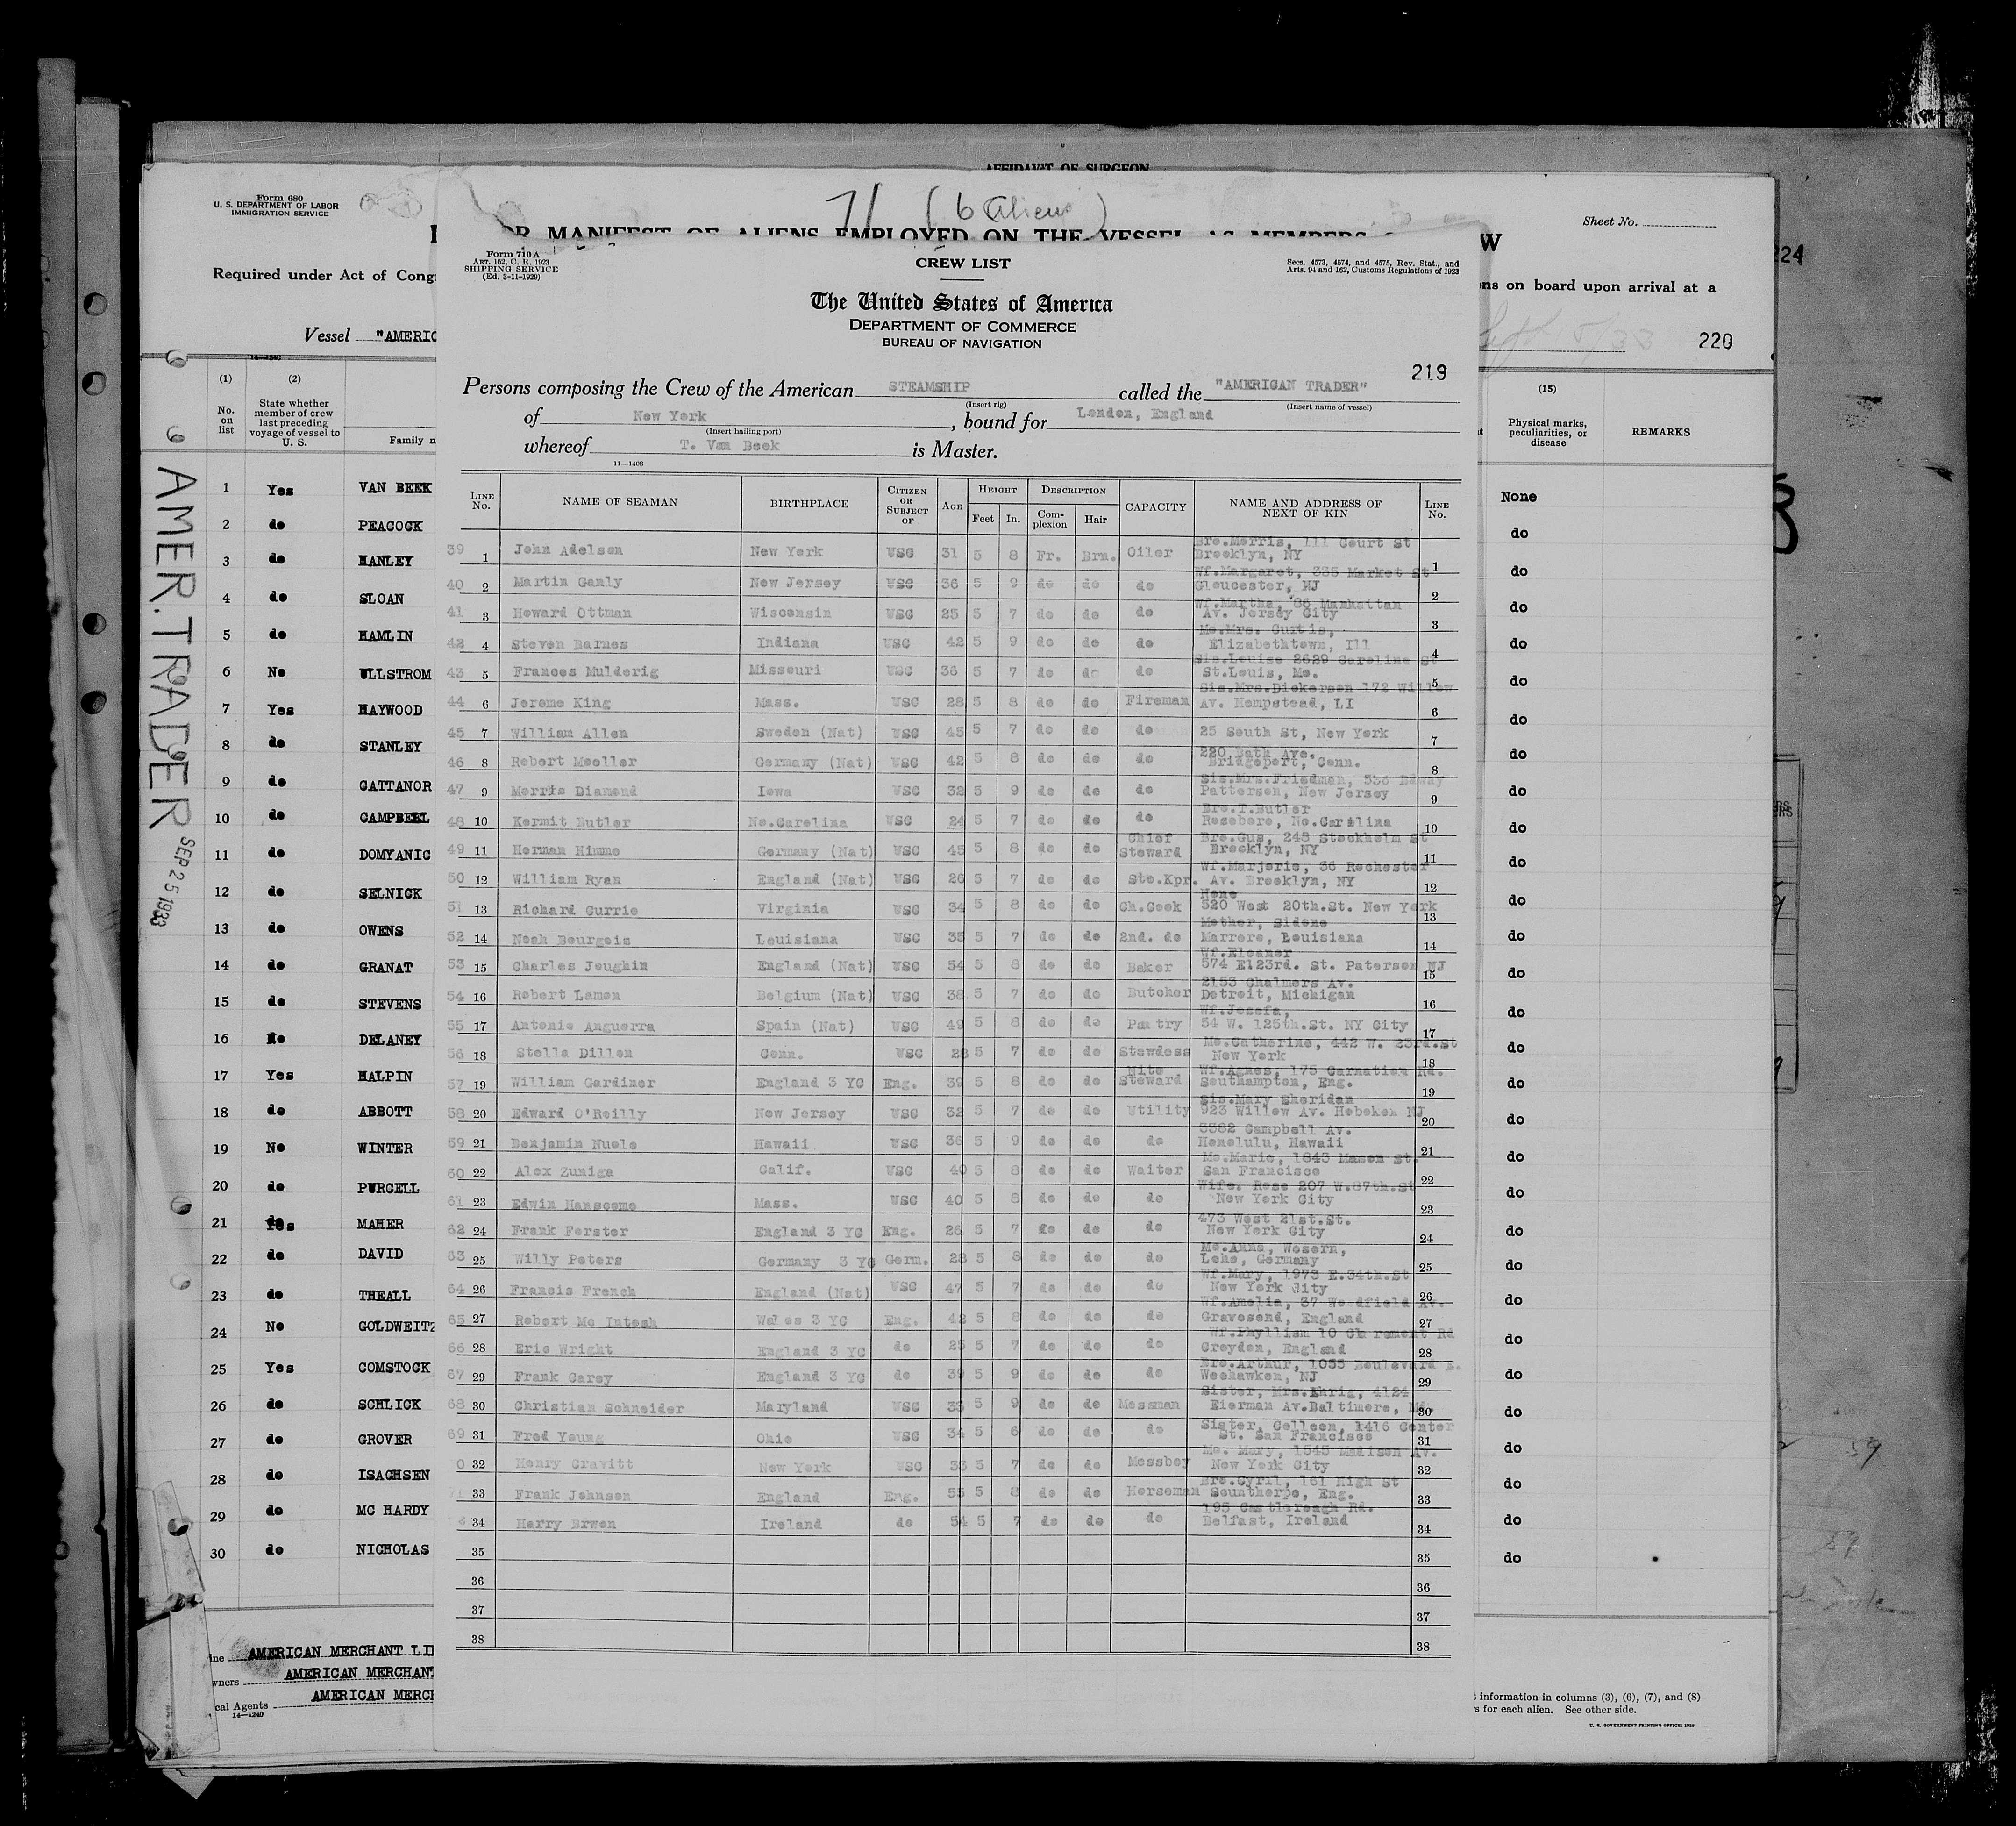 AFFIDAVIT OF SURGEON
Form 680
U. S. DEPARTMENT OF LABOR
IMMIGRATION SERVICE
71 (6 Aliens)
Sheet No.
OR MANIFEST OF ALIENS EMPLOYED ON THE VESSEL AS MEMBERS
W
224
Required under Act of Cong
ns on board upon arrival at a
Vessel "AMERIC
Sept 5/33
220
Form 710 A
ART. 162, C. R. 1923
SHIPPING SERVICE
(Ed. 3-11-1929)
CREW LIST
Secs. 4573, 4574, and 4575, Rev. Stat., and
Arts. 94 and 162, Customs Regulations of 1923
The United States of America
DEPARTMENT OF COMMERCE
BUREAU OF NAVIGATION
219
Persons composing the Crew of the American STEAMSHIP called the "AMERICAN TRADER"
(Insert rig) (Insert name of vessel)
of New York, bound for London, England
(Insert hailing port)
whereof T. Van Beek is Master.
11—1408
LINE No. NAME OF SEAMAN BIRTHPLACE CITIZEN OR SUBJECT OF AGE HEIGHT Feet In. DESCRIPTION Complexion Hair CAPACITY NAME AND ADDRESS OF NEXT OF KIN LINE No.
39 1 John Adelson New York USC 31 5 8 Fr. Brn. Oiler Bro.Morris, 111 Court St Brooklyn, NY 1
40 2 Martin Ganly New Jersey USC 36 5 9 do do do Wf.Margaret, 335 Market St Gloucester, NJ 2
41 3 Howard Ottman Wisconsin USC 25 5 7 do do do Wf.Martha, 86 Manhattan Av. Jersey City 3
42 4 Steven Barnes Indiana USC 42 5 9 do do do Mo.Mrs. Curtis, Elizabethtown, Ill 4
43 5 Frances Mulderig Missouri USC 36 5 7 do do do Sis.Louise 2629 Caroline St St.Louis, Mo. 5
44 6 Jerome King Mass. USC 28 5 8 do do Fireman Sis.Mrs.Dickerson 172 Willow Av. Hempstead, LI 6
45 7 William Allen Sweden (Nat) USC 45 5 7 do do do 25 South St, New York 7
46 8 Robert Moeller Germany (Nat) USC 42 5 8 do do do 220 Bath Ave. Bridgeport, Conn. 8
47 9 Morris Diamond Iowa USC 32 5 9 do do do Sis.Mrs.Friedman, 536 Bdway Patterson, New Jersey 9
48 10 Kermit Butler No.Carolina USC 24 5 7 do do do Bro.T.Butler Roseboro, No.Carolina 10
49 11 Herman Himme Germany (Nat) USC 45 5 8 do do Chief Steward Bro.Gus, 248 Stockholm St Brooklyn, NY 11
50 12 William Ryan England (Nat) USC 26 5 7 do do Sto.Kpr. Wf.Marjorie, 36 Rochester Av. Brooklyn, NY 12
51 13 Richard Currie Virginia USC 34 5 8 do do Ch.Cook None 520 West 20th.St. New York 13
52 14 Noah Bourgois Louisiana USC 35 5 7 do do 2nd. do Mother, Sidone Marrero, Louisiana 14
53 15 Charles Joughin England (Nat) USC 54 5 8 do do Baker Wf.Eleanor 574 E123rd. St. Paterson NJ 15
54 16 Robert Lamon Belgium (Nat) USC 38 5 7 do do Butcher 2153 Chalmers Av. Detroit, Michigan 16
55 17 Antonio Anguerra Spain (Nat) USC 49 5 8 do do Pantry Wf.Josefa, 54 W. 125th.St. NY City 17
56 18 Stella Dillon Conn. USC 28 5 7 do do Stewdess Mo.Catherine, 442 W. 23rd.St New York 18
57 19 William Gardiner England 3 YC Eng. 39 5 8 do do Nite Steward Wf.Agnes, 175 Carnation Rd. Southampton, Eng. 19
58 20 Edward O'Reilly New Jersey USC 32 5 7 do do Utility Sis.Mary Sheridan 923 Willow Av. Hoboken NJ 20
59 21 Benjamin Nuole Hawaii USC 36 5 9 do do do 3382 Campbell Av. Honolulu, Hawaii 21
60 22 Alex Zuniga Calif. USC 40 5 8 do do Waiter Mo.Marie, 1843 Mason St. San Francisco 22
61 23 Edwin Hanscome Mass. USC 40 5 8 do do do Wife. Rose 207 W.87th.St New York City 23
62 24 Frank Forster England 3 YC Eng. 26 5 7 do do do 473 West 21st.St. New York City 24
63 25 Willy Peters Germany 3 YC Germ. 28 5 8 do do do Mo.Anna, Wesern, Lehe, Germany 25
64 26 Francis French England (Nat) USC 47 5 7 do do do Wf.Mary, 1973 E.34th.St New York City 26
65 27 Robert Mc Intosh Wales 3 YC Eng. 42 5 8 do do do Wf.Amelia, 37 Woodfield Av. Gravesend, England 27
66 28 Eric Wright England 3 YC do 25 5 7 do do do Wf.Phylliam 10 Claremont Rd Croydon, England 28
67 29 Frank Carey England 3 YC do 39 5 9 do do do Bro.Arthur, 1055 Boulevard E. Weehawken, NJ 29
68 30 Christian Schneider Maryland USC 33 5 9 do do Messman Sister, Mrs.Ehrig, 4124 Eierman Av.Baltimore, Md. 30
69 31 Fred Young Ohio USC 34 5 6 do do do Sister, Colleen, 1416 Center St. San Francisco 31
0 32 Henry Gravitt New York USC 33 5 7 do do Messboy Mo. Mary, 1545 Madison Av. New York City 32
71 33 Frank Johnson England Eng. 55 5 8 do do Horseman Bro.Cyril, 161 High St Scunthorpe, Eng. 33
34 Harry Erwen Ireland do 54 5 7 do do do 195 Castlereagh Rd. Belfast, Ireland 34
35 35
36 36
37 37
38 38
AMER. TRADER SEP 25 1933
14—1240
(1) No. on list
(2) State whether member of crew last preceding voyage of vessel to U. S.
Family n
1 Yes VAN BEEK
2 do PEACOCK
3 do HANLEY
4 do SLOAN
5 do HAMLIN
6 No ULLSTROM
7 Yes HAYWOOD
8 do STANLEY
9 do CATTANOR
10 do CAMPBELL
11 do DOMYANIC
12 do SELNICK
13 do OWENS
14 do GRANAT
15 do STEVENS
16 No DELANEY
17 Yes HALPIN
18 do ABBOTT
19 No WINTER
20 do PURCELL
21 Yes MAHER
22 do DAVID
23 do THEALL
24 No GOLDWEITZ
25 Yes COMSTOCK
26 do SCHLICK
27 do GROVER
28 do ISACHSEN
29 do MC HARDY
30 do NICHOLAS
(15) Physical marks, peculiarities, or disease
REMARKS
None
do
do
do
do
do
do
do
do
do
do
do
do
do
do
do
do
do
do
do
do
do
do
do
do
do
do
do
do
do
ine AMERICAN MERCHANT LI
wners AMERICAN MERCHAN
cal Agents AMERICAN MERC
14—1240
information in columns (3), (6), (7), and (8)
s for each alien. See other side.
U. S. GOVERNMENT PRINTING OFFICE: 1930
59